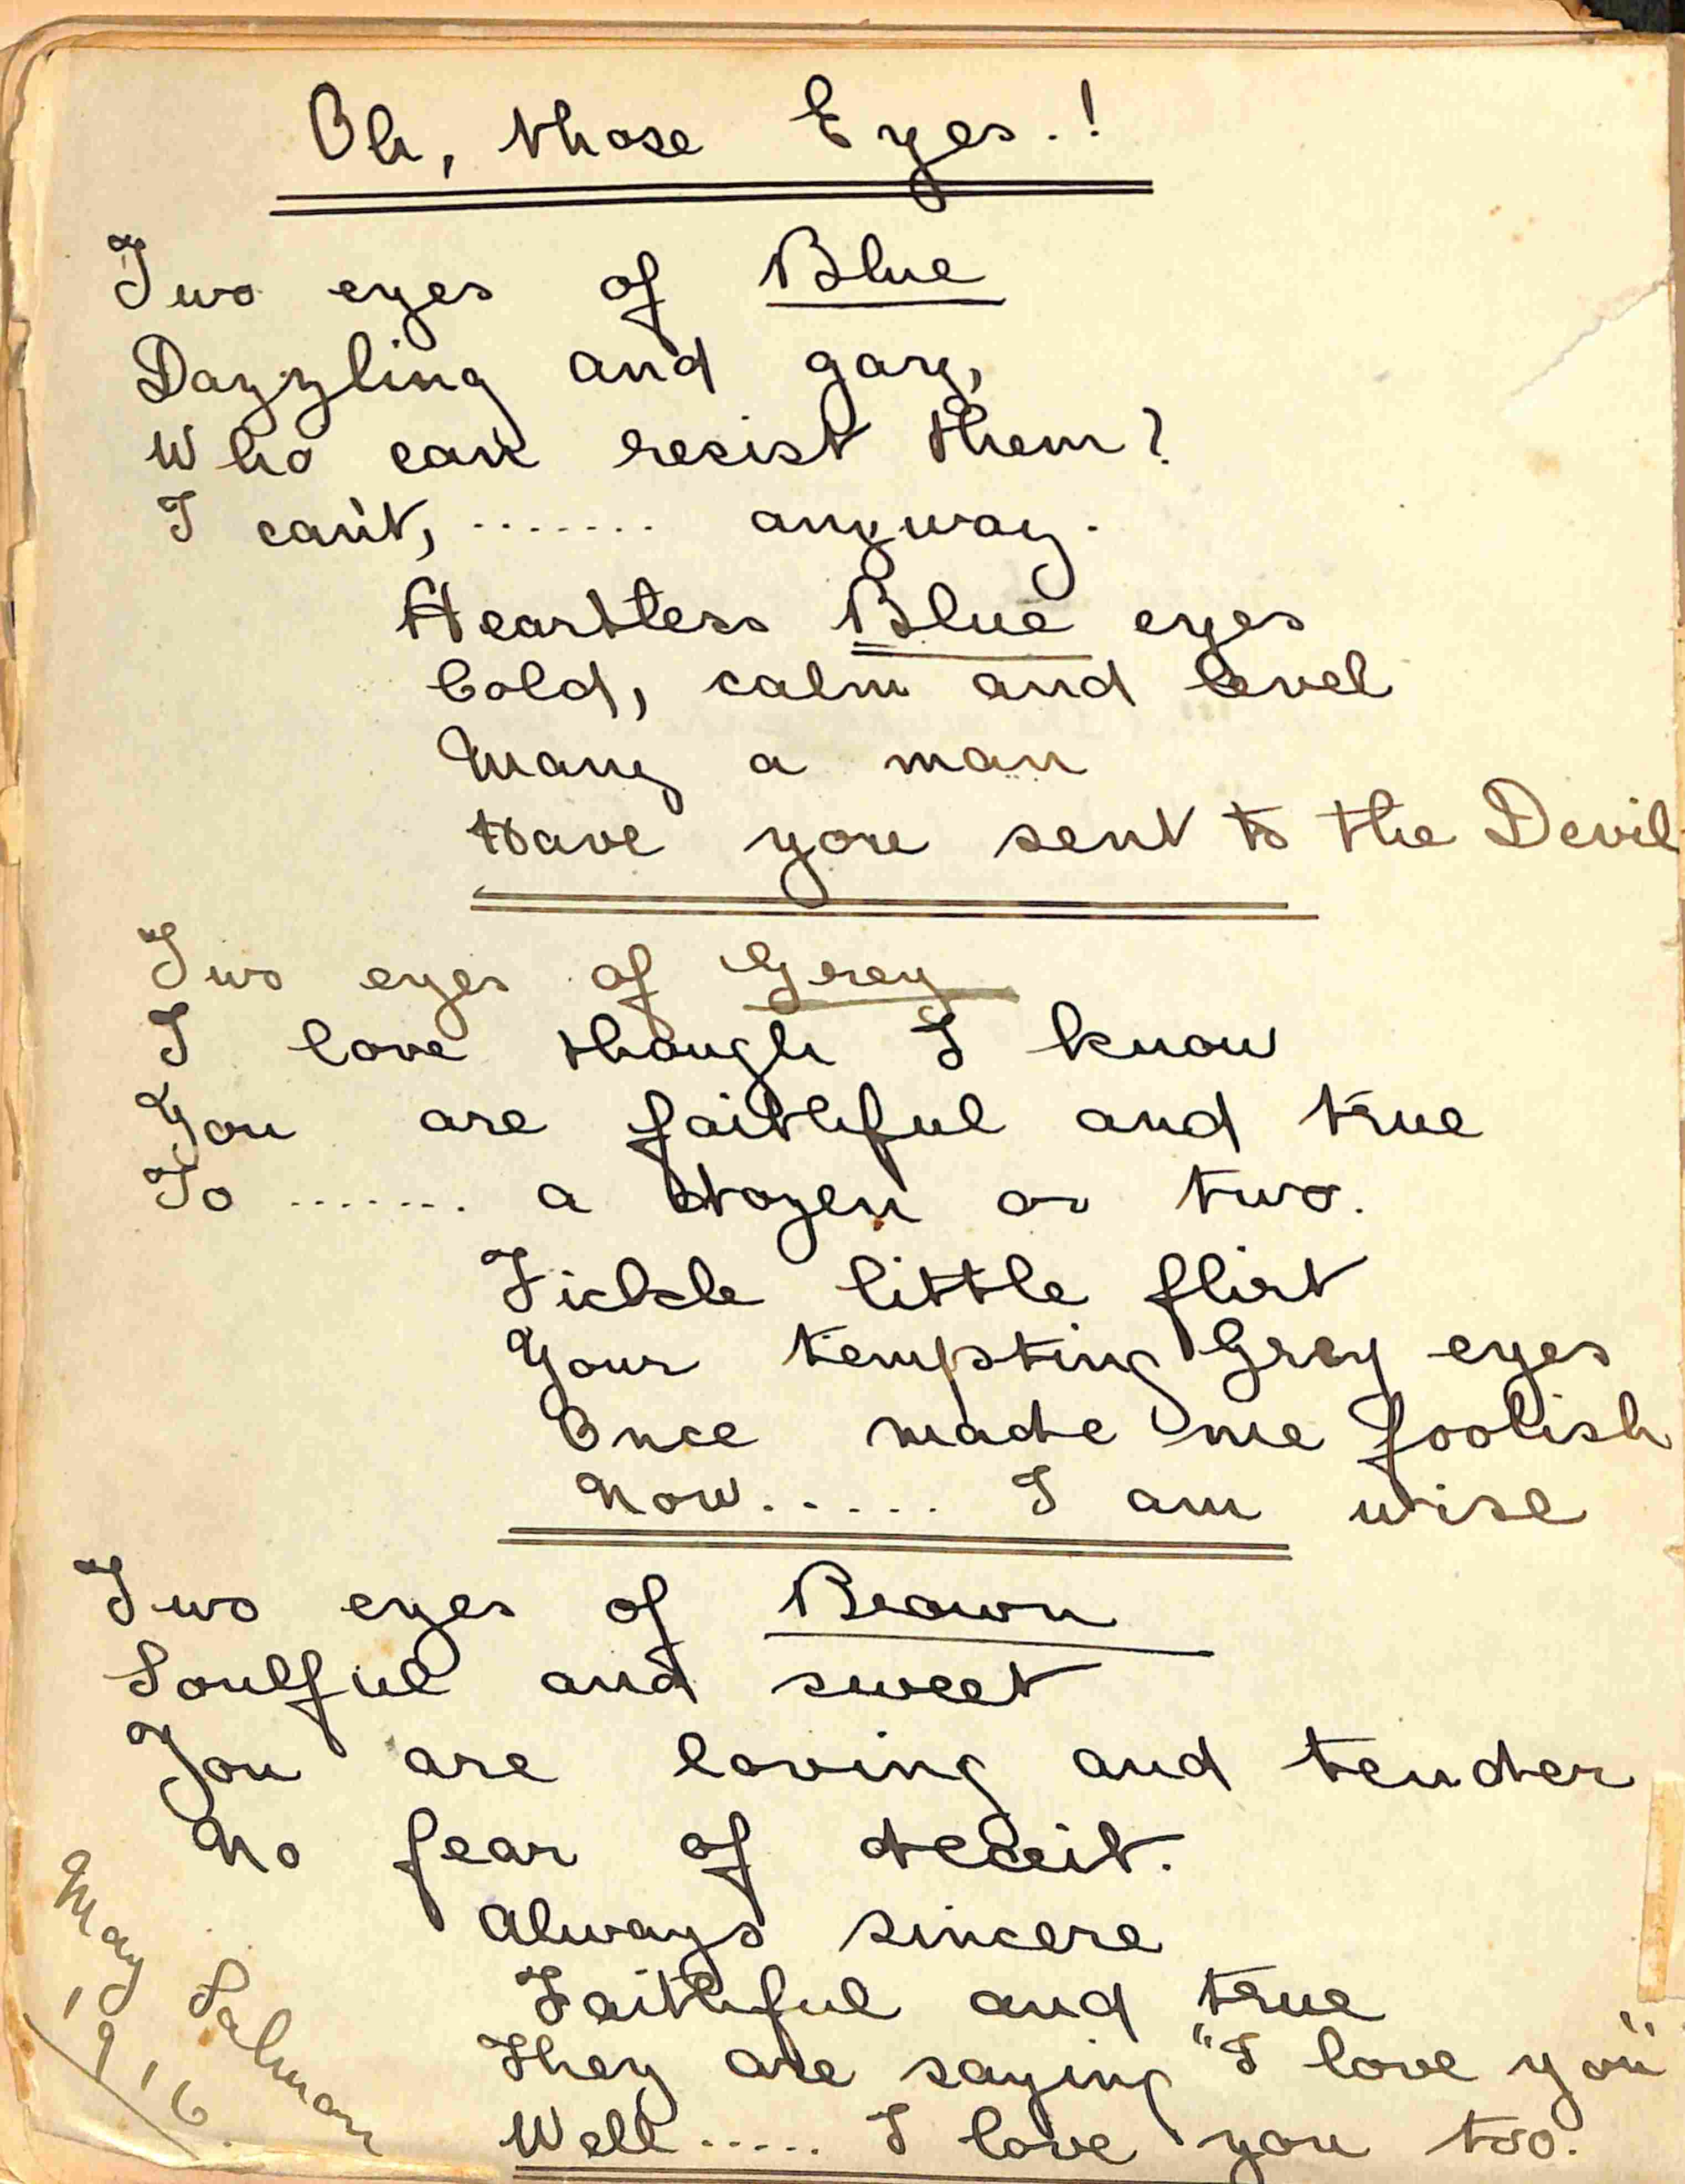 Oh, those Eyes.!
Two eyes of Blue
Dazzling and gay,
Who can resist them?
I can't, ....... anyway.
Heartless Blue eyes
Cold, calm and level
Many a man
Have you sent to the Devil
Two eyes of Grey
I love though I know
You are faithful and true
To ....... a dozen or two.
Fickle little flirt
Your tempting Grey eyes
Once made me foolish
Now..... I am wise
Two eyes of Brown
Soulful and sweet
You are loving and tender
No fear of deceit.
Always sincere
Faithful and true
They are saying "I love you"
Well..... I love you too.
May Salman
1916.